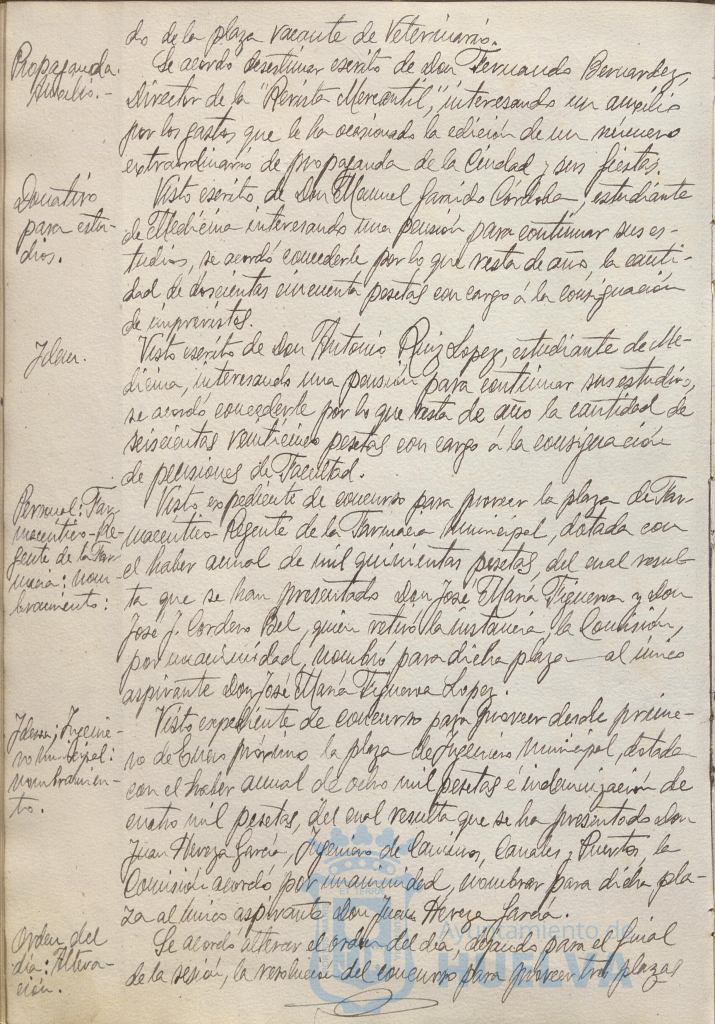 do de la plaza vacante de Veterinario.
Propaganda.
Auxilio.-
Se acordó desestimar escrito de Don Fernando Bernardez,
Director de la "Revista Mercantil", interesando un auxilio
por los gastos que le ha ocasionado la edición de un número
extraordinario de propaganda de la Ciudad y sus fiestas.
Donativo
para estu-
dios.
Visto escrito de Don Manuel Garrido Córdoba, estudiante
de Medicina interesando una pensión para continuar sus es-
tudios, se acordó concederle por lo que resta de año, la canti-
dad de doscientas cincuenta pesetas con cargo á la consignación
de imprevistos.
Idem.
Visto escrito de Don Antonio Ruiz Lopez, estudiante de Me-
dicina, interesando una pensión para continuar sus estudios,
se acordó concederle por lo que resta de año la cantidad de
seiscientas veinticinco pesetas con cargo á la consignación
de pensiones de Facultad.
Personal: Far-
maceutico-Re-
gente de la Far-
macia: nom-
bramiento:
Visto expediente de concurso para proveer la plaza de Far-
maceutico Regente de la Farmacia Municipal, dotada con
el haber anual de mil quinientas pesetas, del cual resul-
ta que se han presentado Don José María Figueroa y Don
José J. Cordero Bel, quien retiró la instancia, la Comisión,
por unanimidad, nombró para dicha plaza al único
aspirante Don José María Figueroa Lopez.
Idem: Ingenie-
ro municipal:
nombramien-
to.
Visto expediente de concurso para proveer desde prime-
ro de Enero próximo la plaza de Ingeniero Municipal, dotada
con el haber anual de ocho mil pesetas é indemnización de
cuatro mil pesetas, del cual resulta que se ha presentado Don
Juan Hereza García, Ingeniero de Caminos, Canales y Puertos, la
Comisión acordó por unanimidad, nombrar para dicha pla-
za al único aspirante Don Juan Hereza García.
Orden del
día: Altera-
ción.
Se acordó alterar el orden del día, dejando para el final
de la sesión, la resolución del concurso para proveer tres plazas
Ayuntamiento de
HUELVA